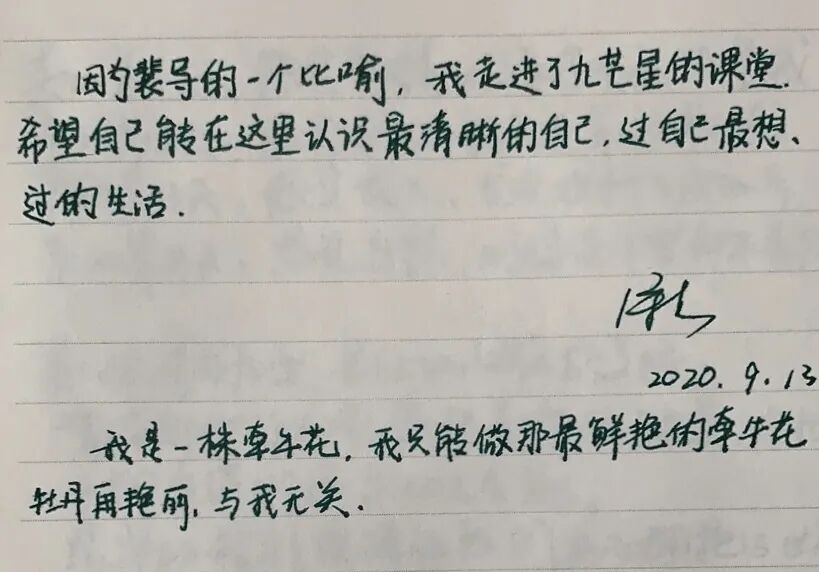 因为裴导的一个比喻，我走进了九芒星的课堂.
希望自己能在这里认识最清晰的自己，过自己最想、
过的生活.
2020.9.13
我是一株牵牛花，我只能做那最鲜艳的牵牛花
牡丹再艳丽，与我无关.